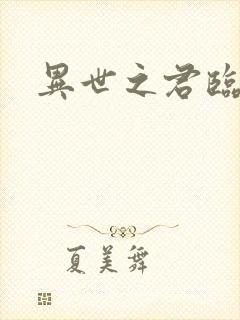 異世之君臨
夏美舞